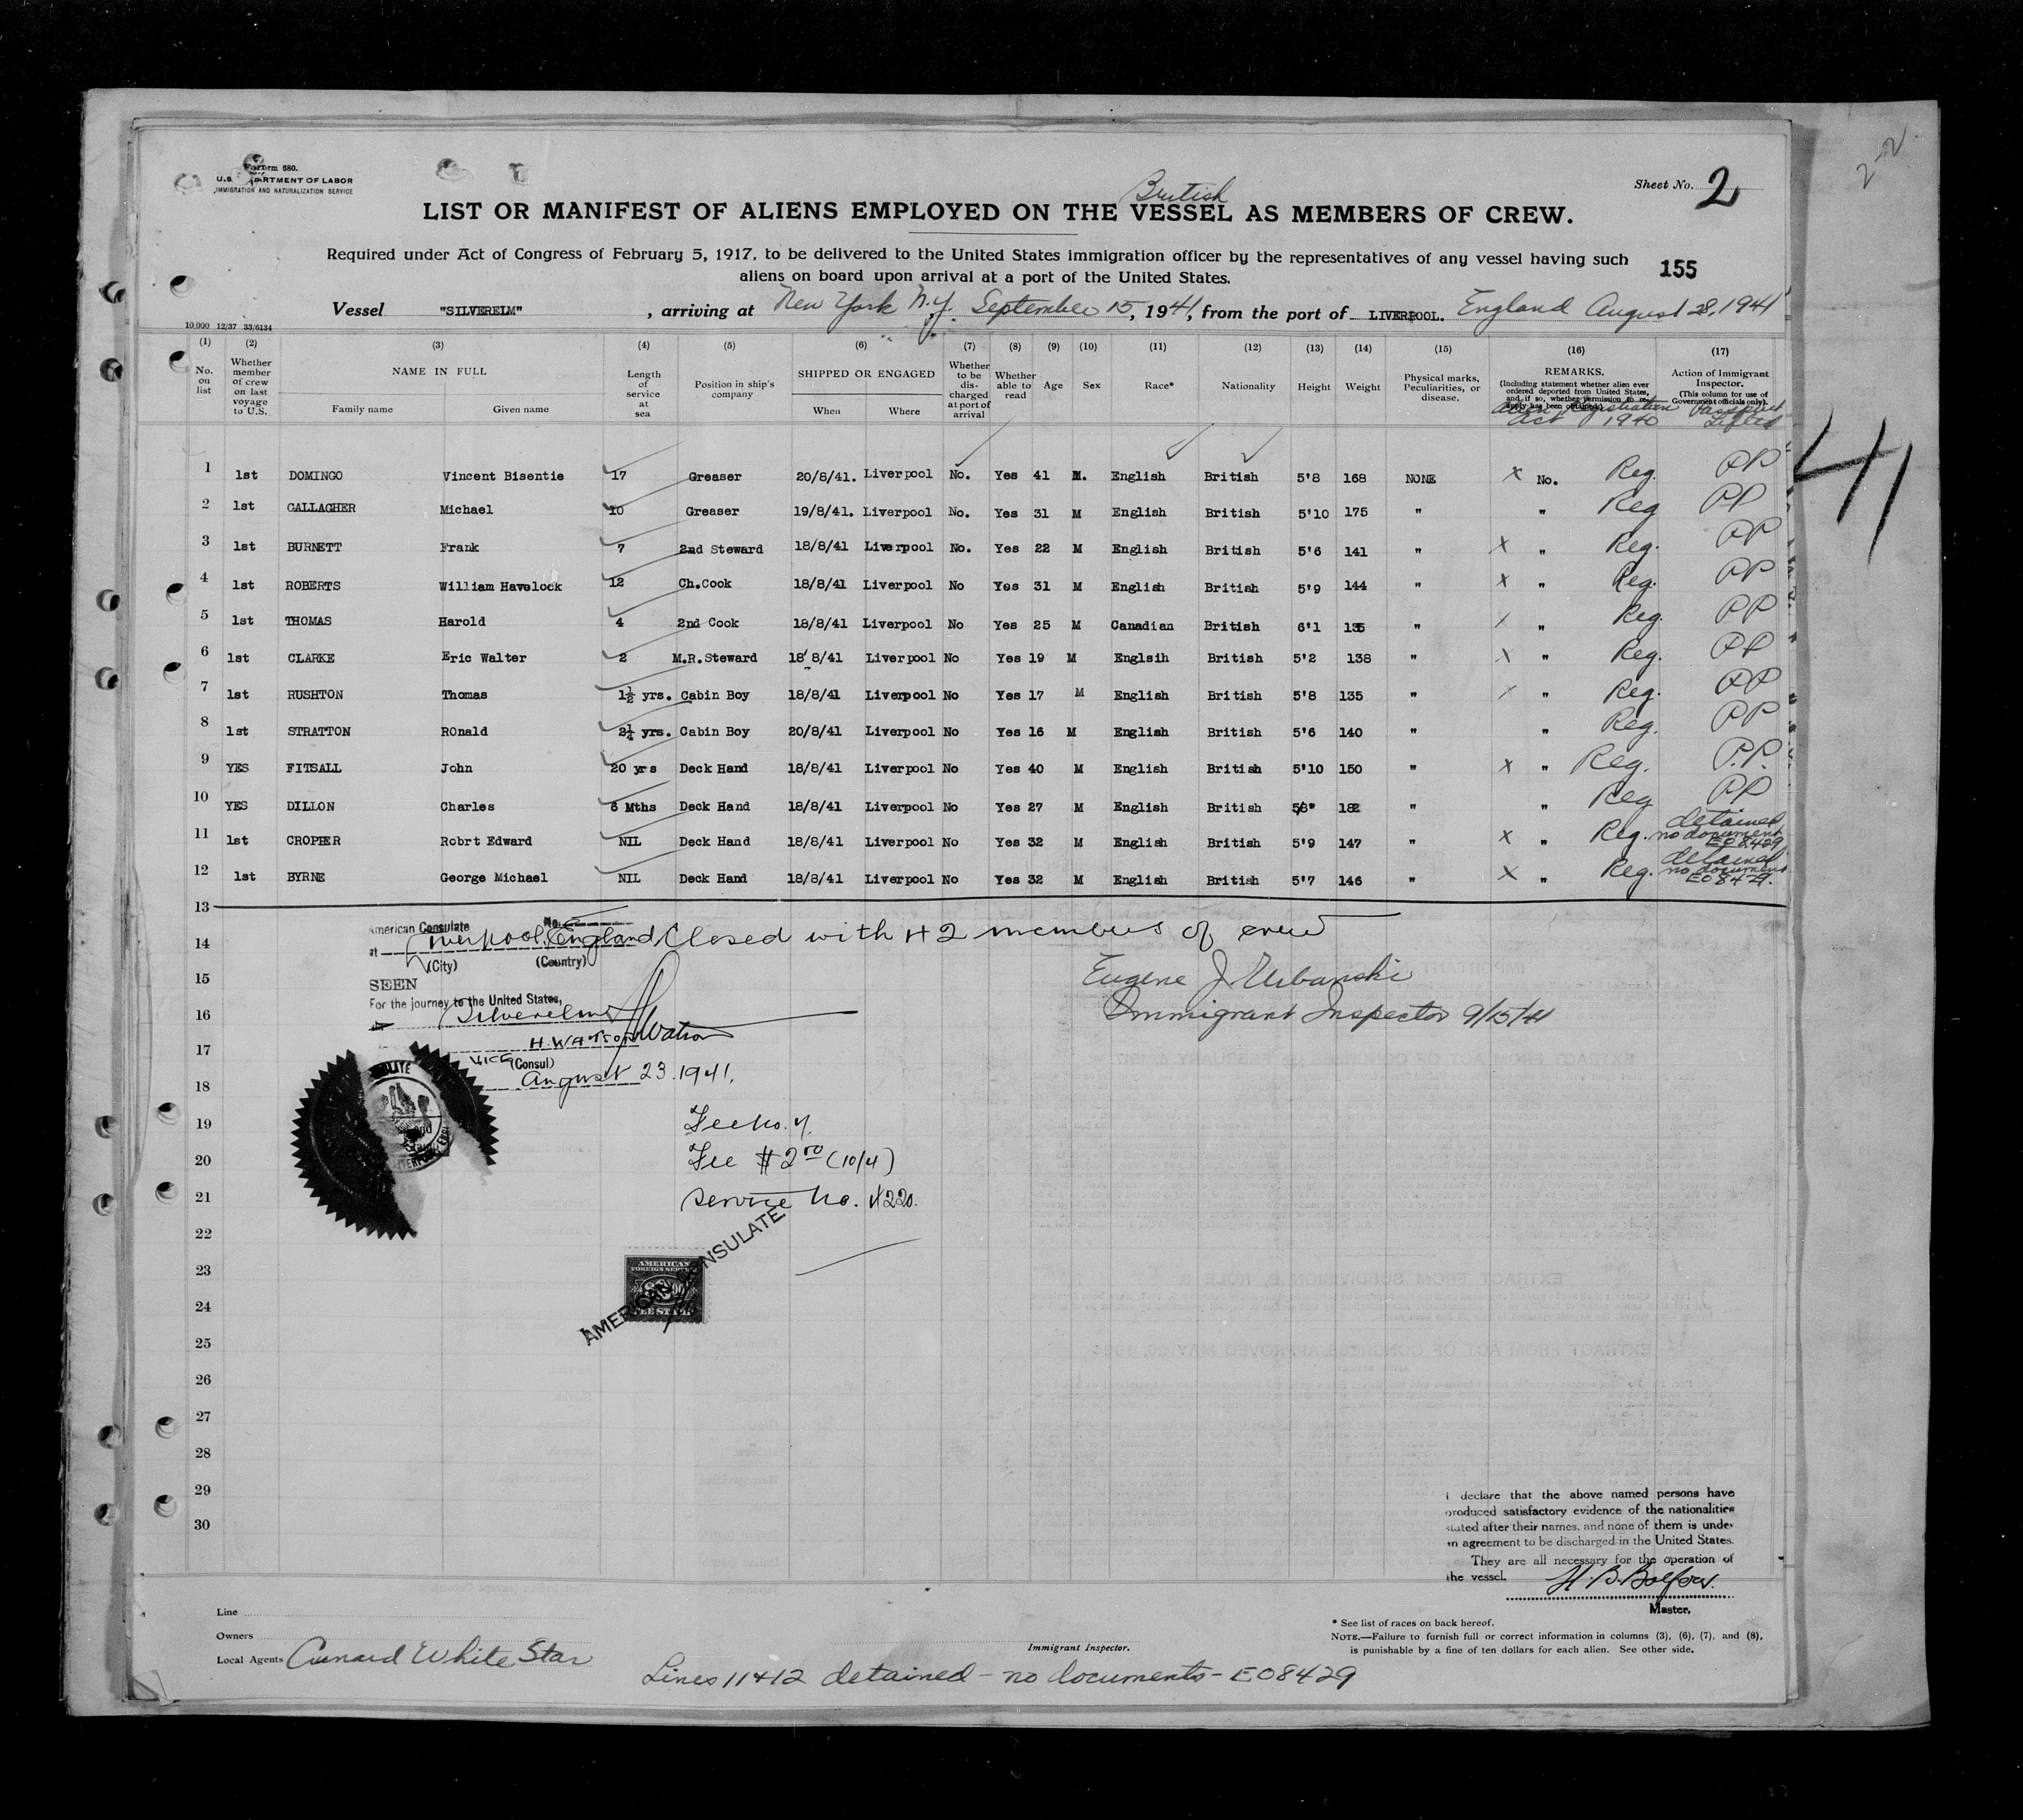 Form 680.
U.S. DEPARTMENT OF LABOR
IMMIGRATION AND NATURALIZATION SERVICE
Sheet No. 2
2-2
British
LIST OR MANIFEST OF ALIENS EMPLOYED ON THE VESSEL AS MEMBERS OF CREW.
Required under Act of Congress of February 5, 1917, to be delivered to the United States immigration officer by the representatives of any vessel having such
aliens on board upon arrival at a port of the United States.
155
Vessel "SILVERELM", arriving at New York N.Y. September 15, 1941, from the port of LIVERPOOL. England August 28, 1941
10,000 12/37 33/6134
(1) (2) (3) (4) (5) (6) (7) (8) (9) (10) (11) (12) (13) (14) (15) (16) (17)
No. on list
Whether member of crew on last voyage to U.S.
NAME IN FULL
Family name
Given name
Length of service at sea
Position in ship's company
SHIPPED OR ENGAGED
When
Where
Whether to be discharged at port of arrival
Whether able to read
Age
Sex
Race*
Nationality
Height
Weight
Physical marks, Peculiarities, or disease.
REMARKS.
(Including statement whether alien ever ordered deported from United States, and if so, whether permission to reapply has been obtained)
Alien Registration Act 1940
Action of Immigrant Inspector.
(This column for use of Government officials only).
Passport Lifted
1 1st DOMINGO Vincent Bisentie 17 Greaser 20/8/41. Liverpool No. Yes 41 M. English British 5'8 168 NONE x No. Reg. PP
2 1st GALLAGHER Michael 10 Greaser 19/8/41. Liverpool No. Yes 31 M English British 5'10 175 " " Reg PP
3 1st BURNETT Frank 7 2nd Steward 18/8/41 Liverpool No. Yes 22 M English British 5'6 141 " x " Reg. PP
4 1st ROBERTS William Havelock 12 Ch.Cook 18/8/41 Liverpool No Yes 31 M English British 5'9 144 " x " Reg. PP
5 1st THOMAS Harold 4 2nd Cook 18/8/41 Liverpool No Yes 25 M Canadian British 6'1 135 " / " Reg. PP
6 1st CLARKE Eric Walter 2 M.R.Steward 18'8/41 Liverpool No Yes 19 M Englsih British 5'2 138 " x " Reg. PP
7 1st RUSHTON Thomas 1½ yrs. Cabin Boy 18/8/41 Liverpool No Yes 17 M English British 5'8 135 " / " Reg. PP
8 1st STRATTON ROnald 2¼ yrs. Cabin Boy 20/8/41 Liverpool No Yes 16 M English British 5'6 140 " " Reg. PP
9 YES FITSALL John 20 yrs Deck Hand 18/8/41 Liverpool No Yes 40 M English British 5'10 150 " x " Reg. P.P.
10 YES DILLON Charles 6 Mths Deck Hand 18/8/41 Liverpool No Yes 27 M English British 5'8" 182 " " Reg PP
11 1st CROPPER Robrt Edward NIL Deck Hand 18/8/41 Liverpool No Yes 32 M English British 5'9 147 " x " Reg. detained no document EO8429
12 1st BYRNE George Michael NIL Deck Hand 18/8/41 Liverpool No Yes 32 M English British 5'7 146 " x " Reg. detained no document EO8429.
41
13
14
15
16
17
18
19
20
21
22
23
24
25
26
27
28
29
30
American Consulate No.
at Liverpool, England Closed with 42 members of crew
(City) (Country)
SEEN
For the journey to the United States,
Silverelm
H. WATSON
VICE (Consul)
August 23. 1941.
Eugene J. Urbanski
Immigrant Inspector 9/15/41
Fee No. 7.
Fee $2.00 (10/4)
Service No. 4220.
AMERICAN FOREIGN SERVICE
FEE STAMP
AMERICAN CONSULATE
I declare that the above named persons have
produced satisfactory evidence of the nationalities
stated after their names, and none of them is under
an agreement to be discharged in the United States.
They are all necessary for the operation of
the vessel.
H. B. Balfour.
Master.
Line
Owners
Local Agents Cunard White Star
Immigrant Inspector.
* See list of races on back hereof.
NOTE.—Failure to furnish full or correct information in columns (3), (6), (7), and (8),
is punishable by a fine of ten dollars for each alien. See other side.
Lines 11 & 12 detained - no documents - EO8429